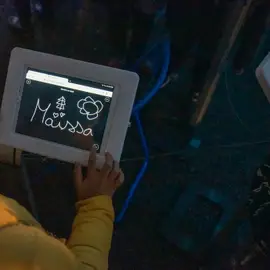 Maïssa